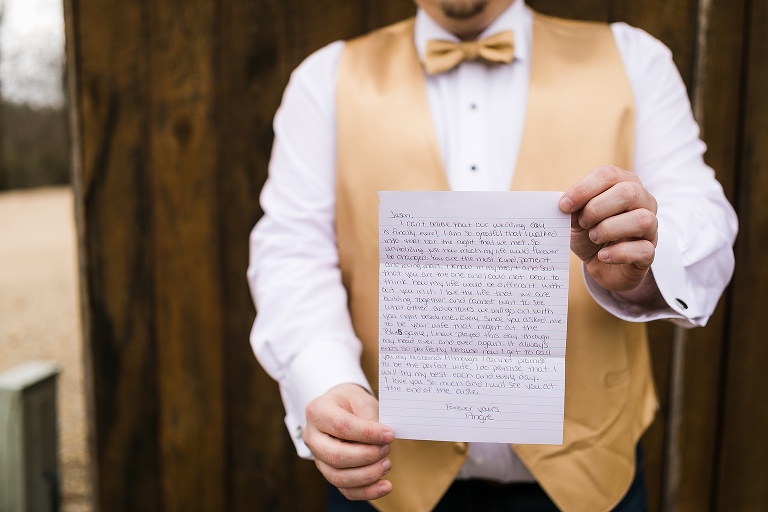 Jason,
I can't believe that our wedding day
is finally here! I am so greatful that I walked
into that bar the night that we met. So
unrealizing just how much my life would forever
be changed. You are the most kind, patient
and loving man. I know in my heart and soul
that you are the one and I could not bear to
think how my life would be different with
out you in it. I love the life that we are
building together and cannot wait to see
what other adventures we will go on with
you right beside me. Every since you asked me
to be your wife that night at the
game, I have played this day through
my head over and over again. It always
ends so perfectly because now I get to call
you my husband. Although I can not promise
to be the perfect wife, I do promise that I
will try my best each and every day.
I love you so much and I will see you at
the end of the aisle.
Forever yours,
Angie